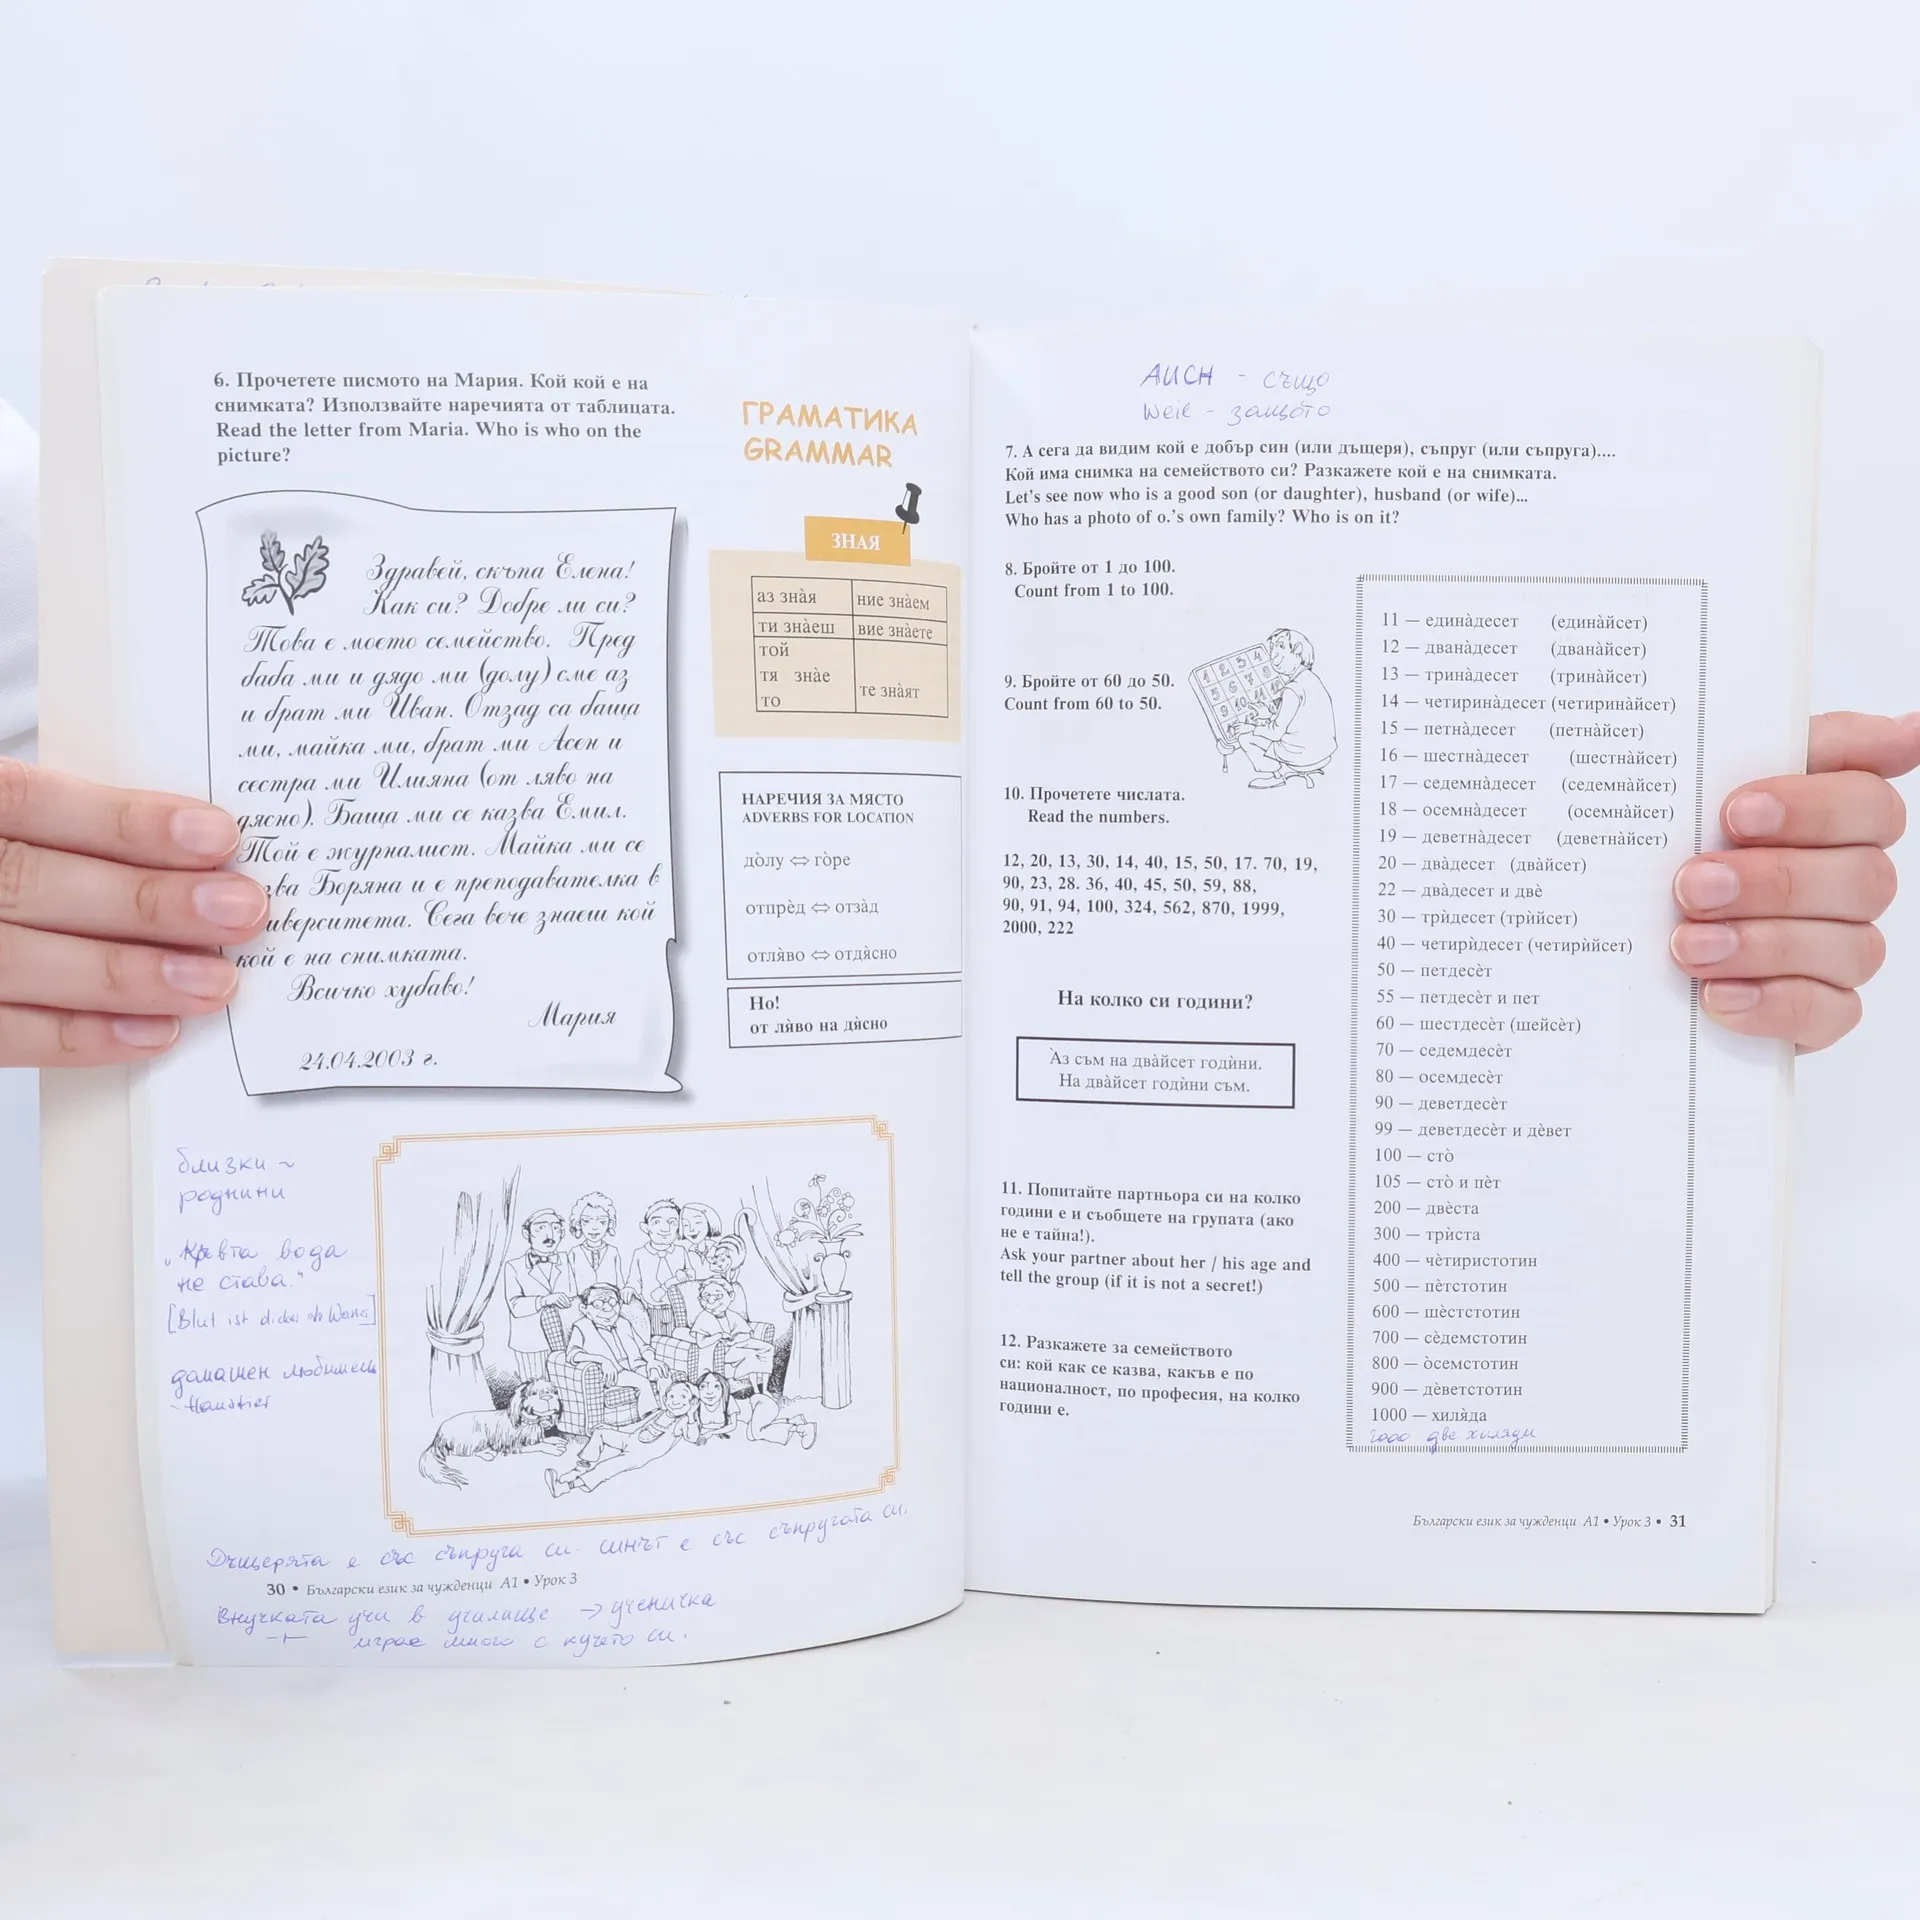 6. Прочетете писмото на Мария. Кой кой е на
снимката? Използвайте наречията от таблицата.
Read the letter from Maria. Who is who on the
picture?
Здравей, скъпа Елена!
Как си? Добре ли си?
Това е моето семейство. Пред
баба ми и дядо ми (долу) сме аз
и брат ми Иван. Отзад са баща
ми, майка ми, брат ми Асен и
сестра ми Илияна (от ляво на
дясно). Баща ми се казва Емил.
Той е журналист. Майка ми се
зва Боряна и е преподавателка в
иверситета. Сега вече знаеш кой
кой е на снимката.
Всичко хубаво!
Мария
24.04.2003 г.
ГРАМАТИКА
GRAMMAR
ЗНАЯ
аз зна̀я ние зна̀ем
ти зна̀еш вие зна̀ете
той
тя зна̀е те зна̀ят
то
НАРЕЧИЯ ЗА МЯСТО
ADVERBS FOR LOCATION
до̀лу ⇔ го̀ре
отпрѐд ⇔ отза̀д
отля̀во ⇔ отдя̀сно
Но!
от ля̀во на дя̀сно
близки ~
роднини
„Кръвта вода
не става."
[Blut ist dicker als
домашен любимец
- Haustier
Дъщерята е със съпруга си. Синът е със съпругата си.
30 • Български език за чужденци А1 • Урок 3
Внучката учи в училище → ученичка
играе много с кучето си.
AUCH - също
Weil - защото
7. А сега да видим кой е добър син (или дъщеря), съпруг (или съпруга)....
Кой има снимка на семейството си? Разкажете кой е на снимката.
Let's see now who is a good son (or daughter), husband (or wife)...
Who has a photo of o.'s own family? Who is on it?
8. Бройте от 1 до 100.
Count from 1 to 100.
9. Бройте от 60 до 50.
Count from 60 to 50.
1 2 3 4
5 6 7 8
9 10 11 12
10. Прочетете числата.
Read the numbers.
12, 20, 13, 30, 14, 40, 15, 50, 17. 70, 19,
90, 23, 28. 36, 40, 45, 50, 59, 88,
90, 91, 94, 100, 324, 562, 870, 1999,
2000, 222
На колко си години?
А̀з съм на два̀йсет годѝни.
На два̀йсет годѝни съм.
11. Попитайте партньора си на колко
години е и съобщете на групата (ако
не е тайна!).
Ask your partner about her / his age and
tell the group (if it is not a secret!)
12. Разкажете за семейството
си: кой как се казва, какъв е по
националност, по професия, на колко
години е.
11 — едина̀десет (едина̀йсет)
12 — двана̀десет (двана̀йсет)
13 — трина̀десет (трина̀йсет)
14 — четирина̀десет (четирина̀йсет)
15 — петна̀десет (петна̀йсет)
16 — шестна̀десет (шестна̀йсет)
17 — седемна̀десет (седемна̀йсет)
18 — осемна̀десет (осемна̀йсет)
19 — деветна̀десет (деветна̀йсет)
20 — два̀десет (два̀йсет)
22 — два̀десет и двѐ
30 — трѝдесет (трѝйсет)
40 — четирѝдесет (четирѝйсет)
50 — петдесѐт
55 — петдесѐт и пет
60 — шестдесѐт (шейсѐт)
70 — седемдесѐт
80 — осемдесѐт
90 — деветдесѐт
99 — деветдесѐт и дѐвет
100 — сто̀
105 — сто̀ и пѐт
200 — двѐста
300 — трѝста
400 — чѐтиристотин
500 — пѐтстотин
600 — шѐстстотин
700 — сѐдемстотин
800 — о̀семстотин
900 — дѐветстотин
1000 — хиля̀да
2000 две хиляди
Български език за чужденци А1 • Урок 3 • 31